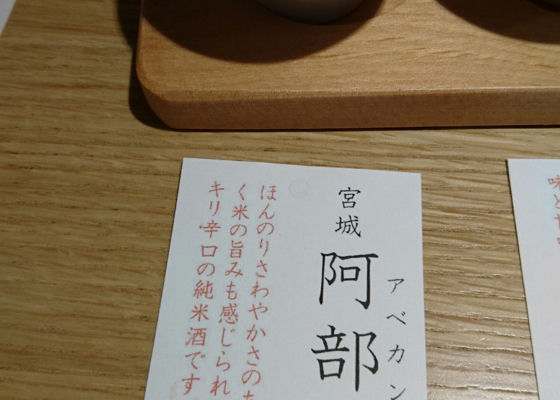 アベカン
宮城
阿部
ほんのりさわやかさの
く米の旨みも感じられ
キリ辛口の純米酒です
味と